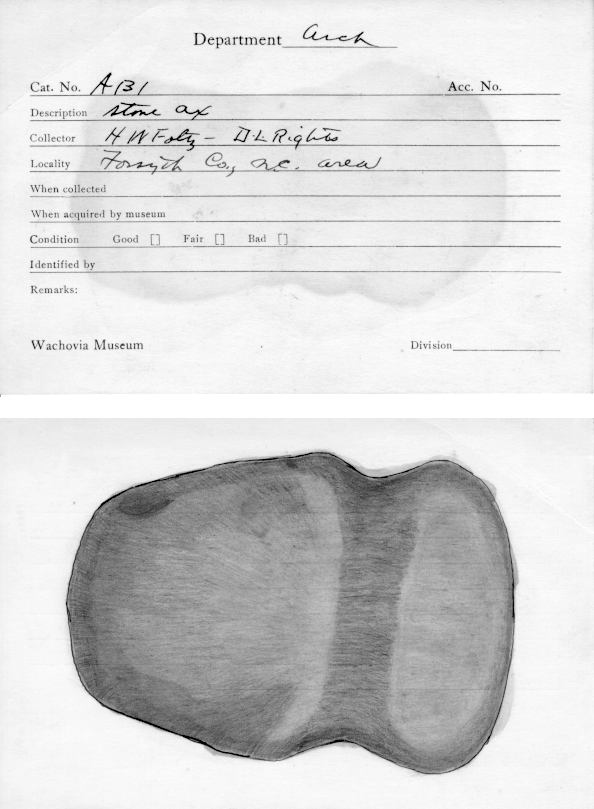 Department Arch
Cat. No. A131 Acc. No.
Description stone ax
Collector H W Foltz - D. L. Rights
Locality Forsyth Co., N.C. area
When collected
When acquired by museum
Condition Good [] Fair [] Bad []
Identified by
Remarks:
Wachovia Museum Division